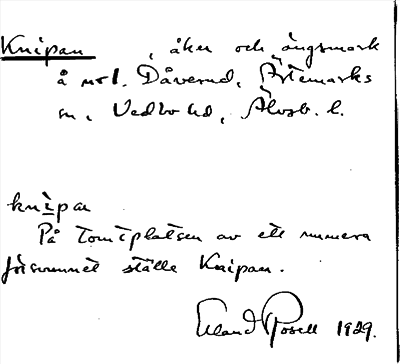 Knipan, åker och ängsmark
å nr 1. Dåverud, Ärtemarks
sn, Vedbo hd, Älvsb. l.
knìpan
På tomtplatsen av ett numera
försvunnet ställe Knipan.
Erland Rosell 1929.